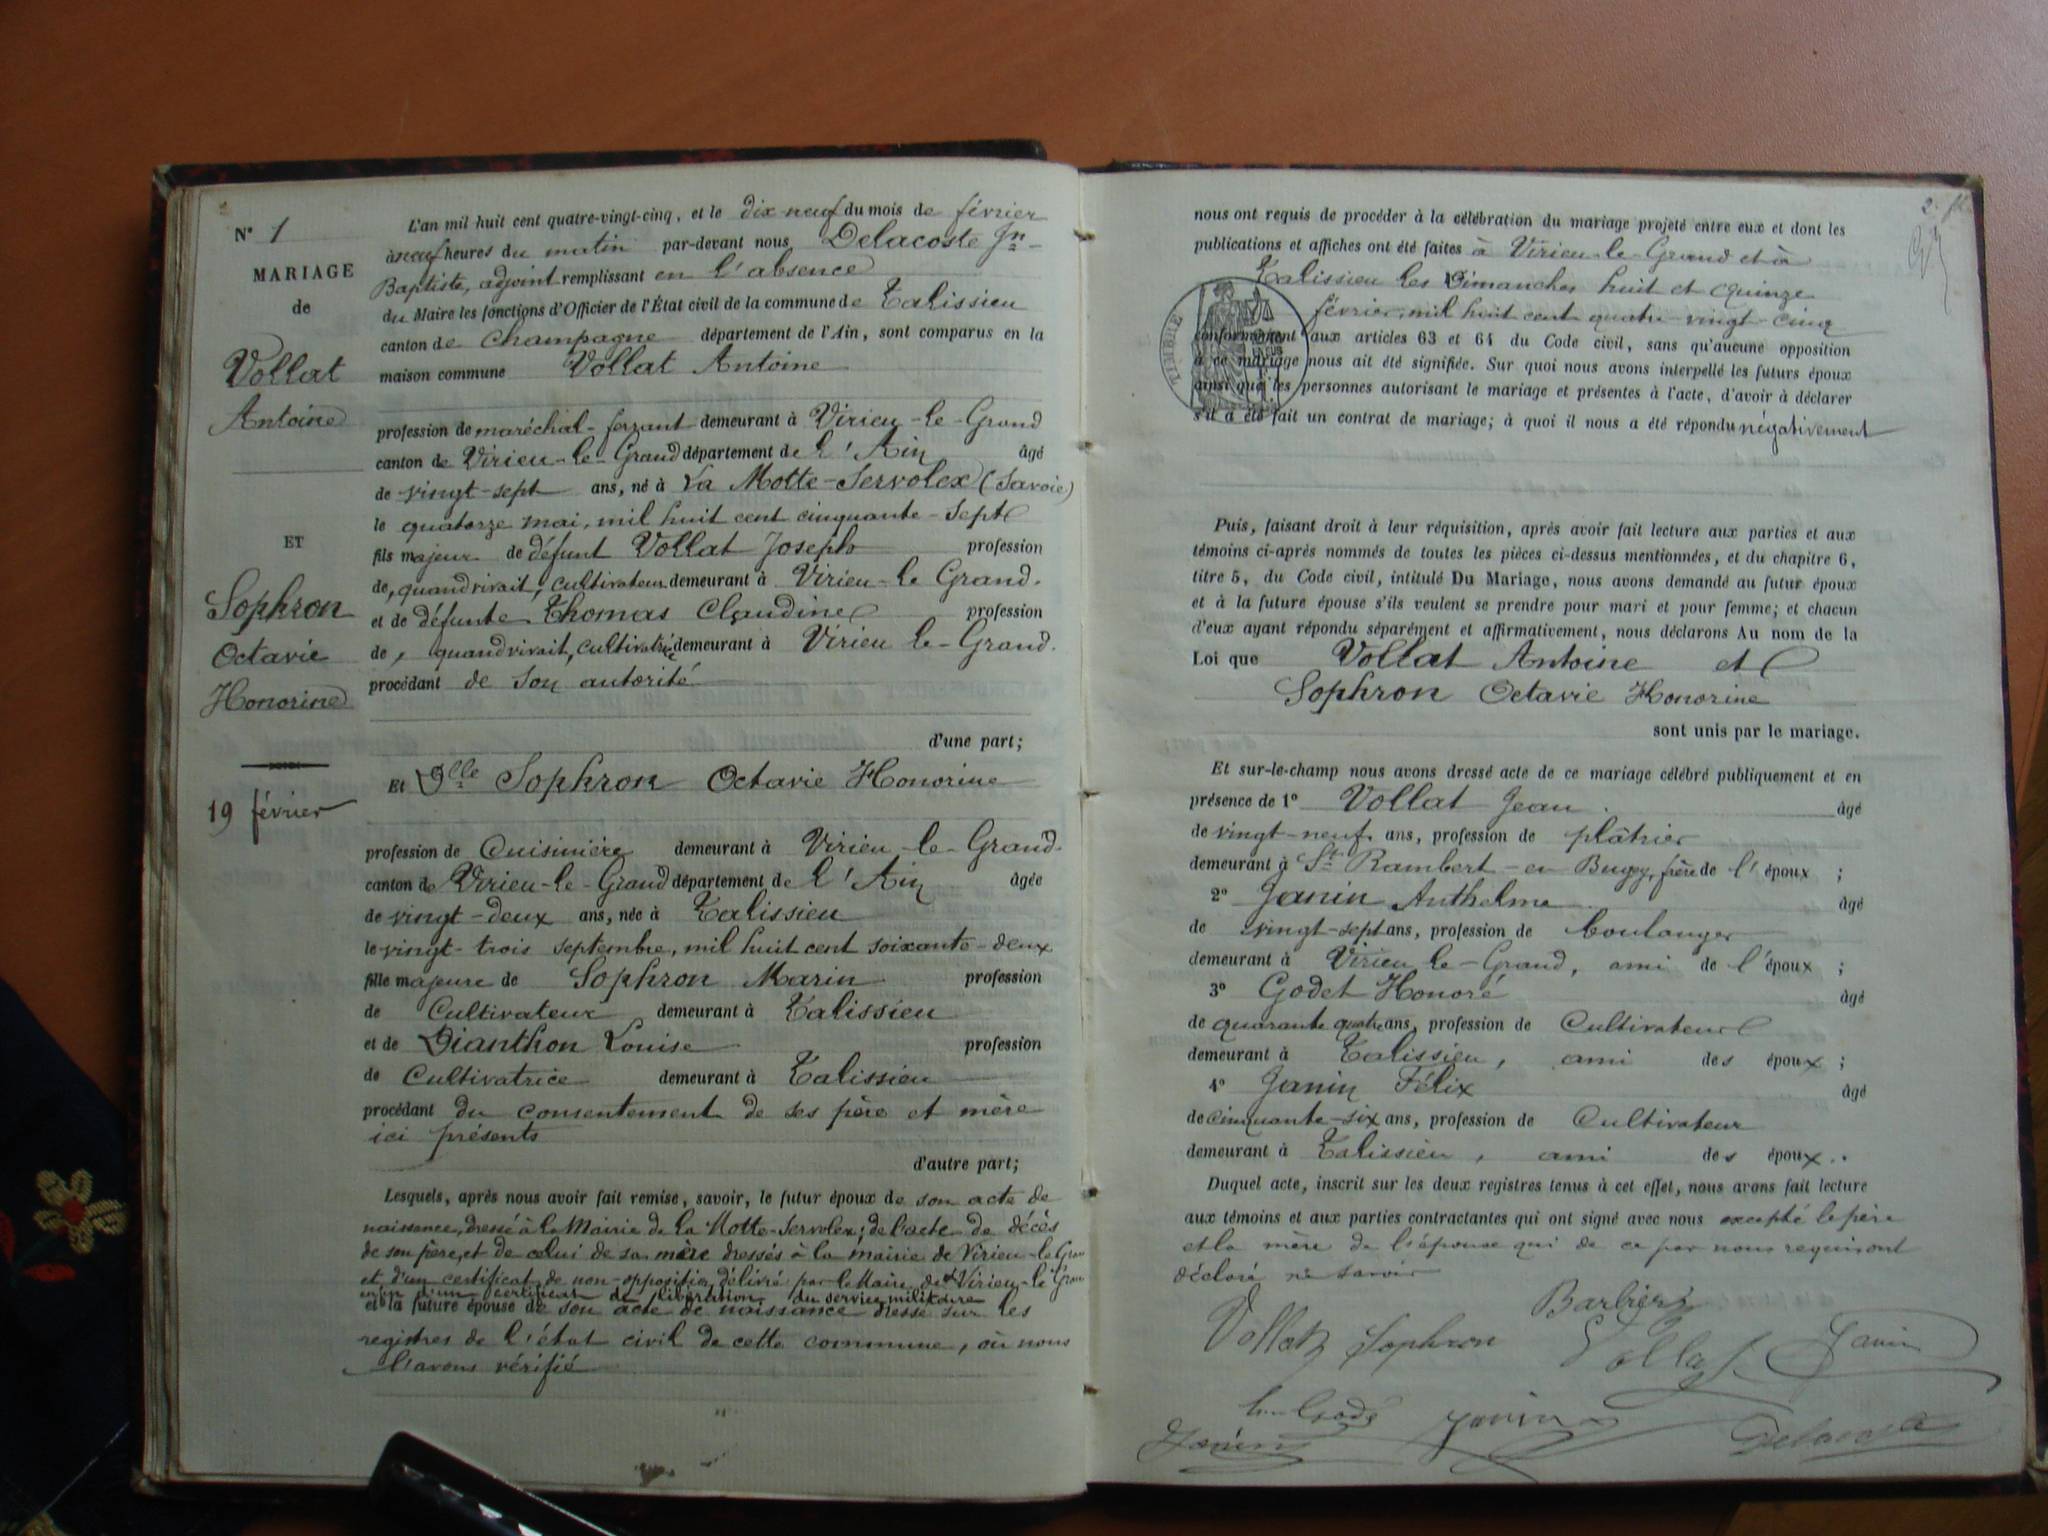 N° 1
MARIAGE
de
Vollat
Antoine
ET
Sophron
Octavie
Honorine
19 février
L'an mil huit cent quatre-vingt-cinq, et le dix-neuf du mois de février
à neuf heures du matin par-devant nous Delacoste Jn
Baptiste, adjoint remplissant en l'absence
du Maire les fonctions d'Officier de l'État civil de la commune de Talissieu
canton de Champagne département de l'Ain, sont comparus en la
maison commune Vollat Antoine
profession de maréchal-ferrant demeurant à Virieu-le-Grand
canton de Virieu-le-Grand département de l'Ain âgé
de vingt-sept ans, né à La Motte-Servolex (Savoie)
le quatorze mai, mil huit cent cinquante-sept
fils majeur de défunt Vollat Joseph profession
de, quand vivait, cultivateur demeurant à Virieu-le Grand.
et de défunte Thomas Claudine profession
de, quand vivait, cultivatrice demeurant à Virieu le-Grand.
procédant de son autorité
d'une part;
Et Dlle Sophron Octavie Honorine
profession de Cuisinière demeurant à Virieu-le-Grand.
canton de Virieu-le-Grand département de l'Ain âgée
de vingt-deux ans, née à Talissieu
le vingt-trois septembre, mil huit cent soixante-deux
fille majeure de Sophron Marin profession
de Cultivateur demeurant à Talissieu
et de Dianthon Louise profession
de Cultivatrice demeurant à Talissieu
procédant du consentement de ses père et mère
ici présents
d'autre part;
Lesquels, après nous avoir fait remise, savoir, le futur époux de son acte de
naissance, dressé à la Mairie de la Motte-Servolex; de l'acte de décès
de son père, et de celui de sa mère dressés à la mairie de Virieu-le Gran
et d'un certificat de non-opposition délivré par le Maire de Virieu-le Gran
enfin d'un certificat de libération du service militaire
et la future épouse de son acte de naissance dressé sur les
registres de l'état civil de cette commune, où nous
l'avons vérifié
2.
nous ont requis de procéder à la célébration du mariage projeté entre eux et dont les
publications et affiches ont été faites à Virieu-le-Grand et à
Talissieu les Dimanches huit et quinze
février, mil huit cent quatre-vingt-cinq
TIMBRE
conformément aux articles 63 et 64 du Code civil, sans qu'aucune opposition
à ce mariage nous ait été signifiée. Sur quoi nous avons interpellé les futurs époux
ainsi que les personnes autorisant le mariage et présentes à l'acte, d'avoir à déclarer
s'il a été fait un contrat de mariage; à quoi il nous a été répondu négativement
Puis, faisant droit à leur réquisition, après avoir fait lecture aux parties et aux
témoins ci-après nommés de toutes les pièces ci-dessus mentionnées, et du chapitre 6,
titre 5, du Code civil, intitulé Du Mariage, nous avons demandé au futur époux
et à la future épouse s'ils veulent se prendre pour mari et pour femme; et chacun
d'eux ayant répondu séparément et affirmativement, nous déclarons Au nom de la
Loi que Vollat Antoine et
Sophron Octavie Honorine
sont unis par le mariage.
Et sur-le-champ nous avons dressé acte de ce mariage célébré publiquement et en
présence de 1° Vollat Jean. âgé
de vingt-neuf ans, profession de plâtrier
demeurant à St Rambert-en Bugey, frère de l'époux ;
2° Janin Anthelme âgé
de vingt-sept ans, profession de boulanger
demeurant à Virieu le-Grand, ami de l'époux ;
3° Godet Honoré âgé
de quarante quatre ans, profession de Cultivateur
demeurant à Talissieu, ami des époux ;
4° Janin Félix âgé
de cinquante-six ans, profession de Cultivateur
demeurant à Talissieu, ami des époux..
Duquel acte, inscrit sur les deux registres tenus à cet effet, nous avons fait lecture
aux témoins et aux parties contractantes qui ont signé avec nous excepté le père
et la mère de l'épouse qui de ce par nous requis ont
déclaré ne savoir
Barbier
Vollat Sophron Vollat Janin
Janin Delacoste